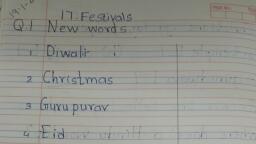 17. Festivals
Q.1 New words.
1. Diwali
2 Christmas
3 Gurupurav
4 Eid